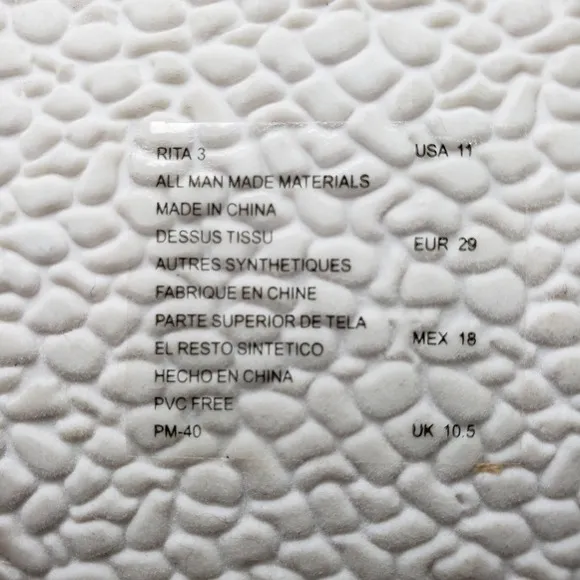 RITA 3 USA 11
ALL MAN MADE MATERIALS
MADE IN CHINA
DESSUS TISSU EUR 29
AUTRES SYNTHETIQUES
FABRIQUE EN CHINE
PARTE SUPERIOR DE TELA
EL RESTO SINTETICO MEX 18
HECHO EN CHINA
PVC FREE
PM-40 UK 10.5